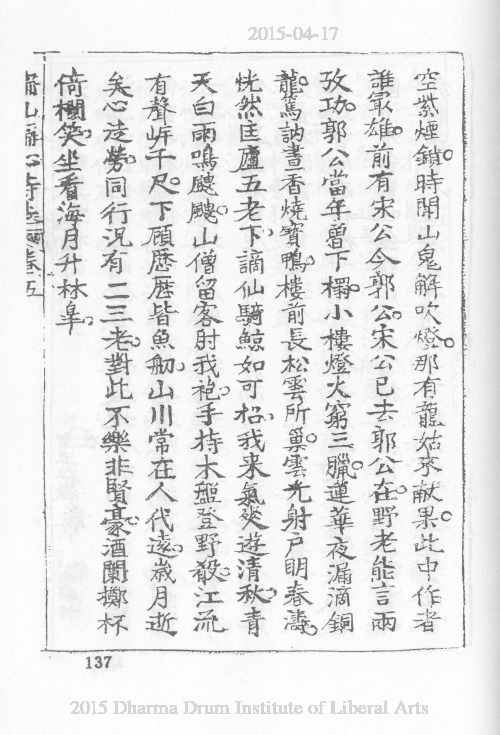 2015-04-17
空紫煙鎖時聞山鬼解吹燈那有龍姑來献果此中作者
誰最雄前有宋公今郭公宋公已去郭公在野老能言兩
攻功郭公當年曾下榻小樓燈火窮三臘蓮華夜漏滴銅
龍篤訥晝香燒寶鴨樓前長松雲所巢雲光射戶明春濤
恍然匡廬五老下謫仙騎鯨如可招我来氣爽遊清秋青
天白雨鳴颼颼山僧留客尉我袍手持木盤登野殽江流
有聲岓千尺下顧歷歷皆魚舠山川常在人代遠歲月逝
矣心徒勞同行况有二三老對此不樂非賢豪酒闌擲杯
倚欄笑坐看海月升林皋
137
2015 Dharma Drum Institute of Liberal Arts